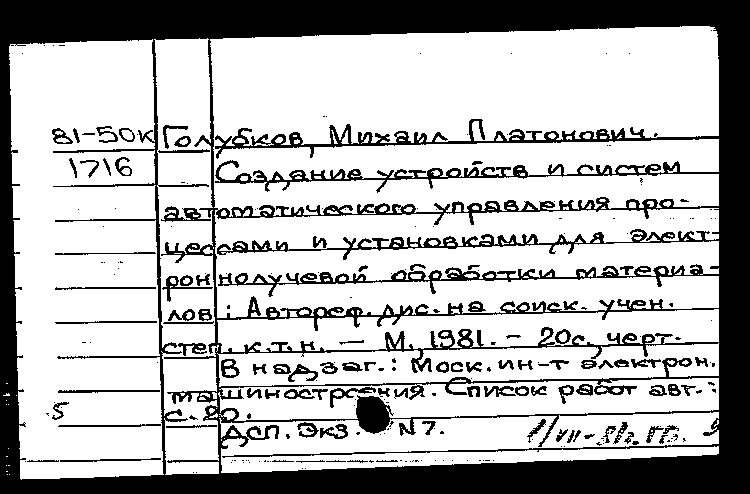 81-50к Голубков, Михаил Платонович.
1716 Создание устройств и систем
автоматического управления про-
цессами и установками для элект-
роннолучевой обработки материа-
лов : Автореф. дис. на соиск. учен.
степ. к.т.н. — М., 1981. - 20с., черт.
В надзаг.: Моск. ин-т электрон.
машиностроения. Список работ авт.:
5 с. 20.
ДСП. Экз. N 7.